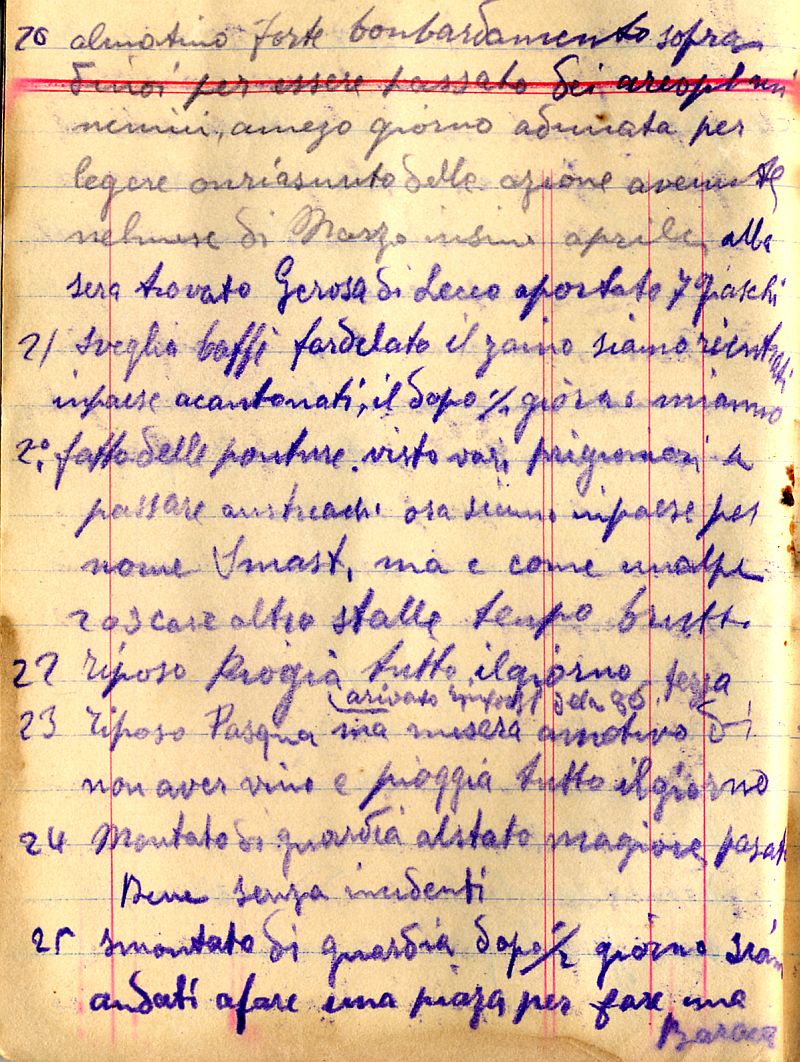 20 almatino forte bonbardamento sopra
dinoi per essere passato dei areoplani
nemici, amezo giorno adunata per
legere onriasunto delle azione avenute
nelmese di Marzo insino aprile, alla
sera trovato Gerosa di Lecco aportato 7 fiaschi
21 sveglia baffi fardelato il zaino siamo rientrati
inpaese acantonati, il dopo ½ giorno
2° fatto delle ponture. visto vari prigionieri a
passare austriachi ora siamo inpaese per
nome Smast, ma e come unalpe
altro stalle tempo brutto
22 riposo piogia tutto ilgiorno
(arivato rinforzi della 86 terza
23 riposo Pasqua ma misera amotivo di
non aver vino e pioggia tutto ilgiorno
24 Montato di guardia alstato magiore pasato
Bene senza incidenti
25 smontato di guardia dopo ½ giorno siam
andati afare una piaza per fare una
Baraca